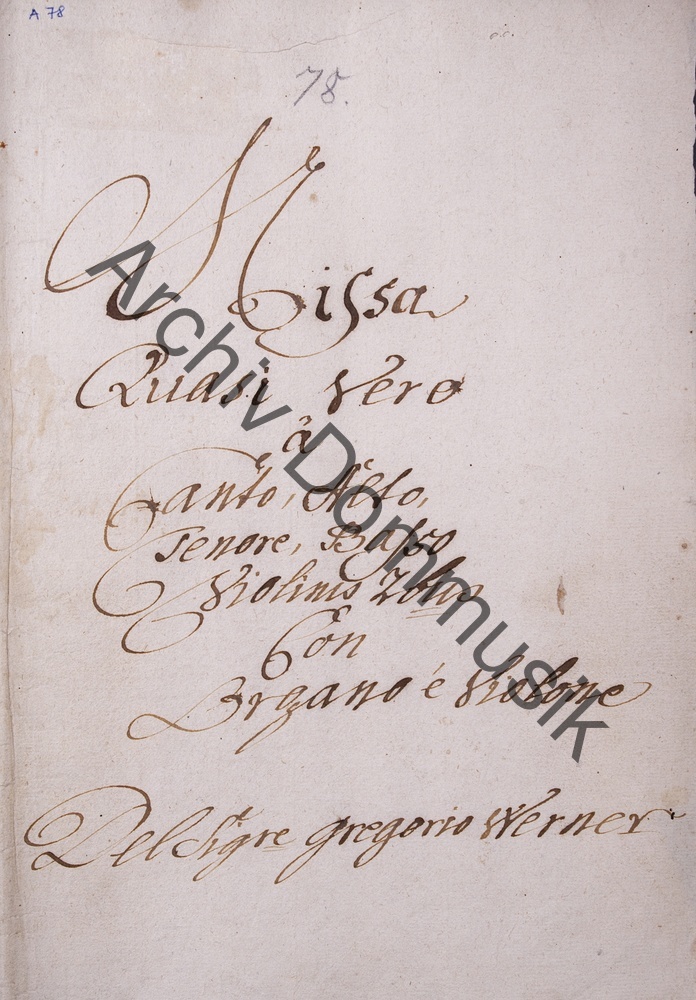 A 78
78.
Missa
Quasi Vero
â
Canto, Alto,
Tenore, Basso
Violinis 2obus
Con
Organo é Violone
Del Sigre Gregorio Werner
Archiv Dommusik